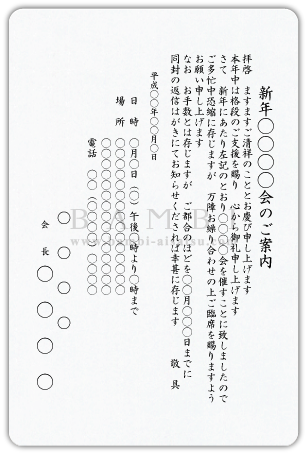 新年〇〇〇〇会のご案内
拝啓　ますますご清祥のこととお慶び申し上げます
本年中は格段のご支援を賜り　心から御礼申し上げます
さて　新年にあたり左記のとおり〇〇〇〇会を催すことに致しましたので
ご多忙中恐縮に存じますが　万障お繰り合わせの上ご臨席を賜りますよう
お願い申し上げます
なお　お手数とは存じますが　ご都合のほどを〇〇月〇〇日までに
同封の返信はがきにてお知らせくだされば幸甚に存じます
敬　具
平成〇〇年〇〇月〇〇日
日　時　〇月〇日（〇）午後〇時より〇時まで
場　所　〇〇〇〇〇〇〇〇〇〇
〇〇〇〇〇〇〇〇〇〇
電話　〇〇（〇〇〇〇）〇〇〇〇
〇〇〇〇〇
会　長　〇〇　〇〇